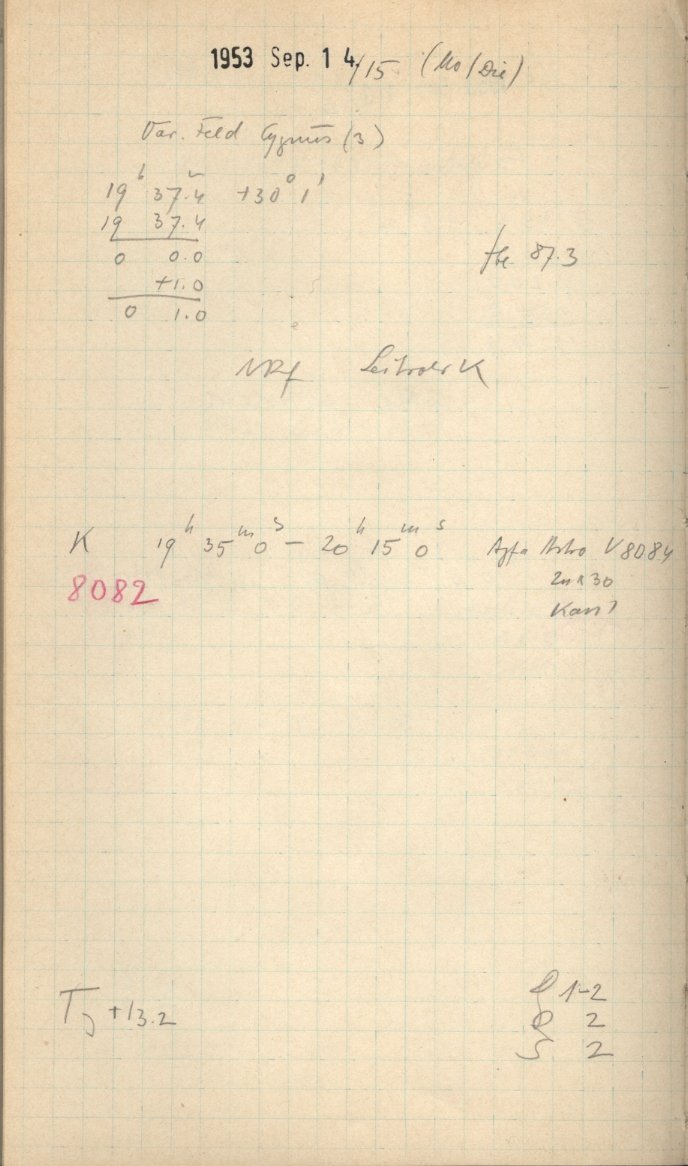 1953 Sep. 14/15 (Mo/Die)
Var. Feld Cygnus (3)
19h 37.4m +30° 1'
19 37.4
0 0.0
+1.0
0 1.0
87.3
K 19h 35m 0s – 20h 15m 0s Agfa Astro V 8084
8082
30
T +13.2
1-2
2
2